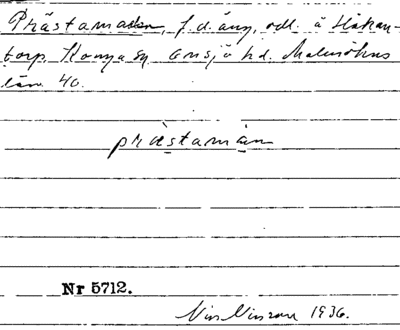 Prästamaden, f. d. äng, odl. å Håkan-
torp, Konga sn Onsjö hd. Malmöhus
län 40.
prästamän
Nr 5712.
1936.